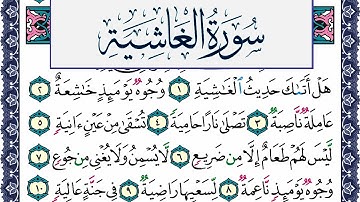 سُورَةُ الْغَاشِيَةِ
هَلْ أَتَىٰكَ حَدِيثُ الْغَٰشِيَةِ ١ وُجُوهٌ يَوْمَئِذٍ خَٰشِعَةٌ ٢
عَامِلَةٌ نَّاصِبَةٌ ٣ تَصْلَىٰ نَارًا حَامِيَةً ٤ تُسْقَىٰ مِنْ عَيْنٍ ءَانِيَةٍ ٥
لَّيْسَ لَهُمْ طَعَامٌ إِلَّا مِن ضَرِيعٍ ٦ لَّا يُسْمِنُ وَلَا يُغْنِي مِن جُوعٍ ٧
وُجُوهٌ يَوْمَئِذٍ نَّاعِمَةٌ ٨ لِّسَعْيِهَا رَاضِيَةٌ ٩ فِي جَنَّةٍ عَالِيَةٍ ١٠